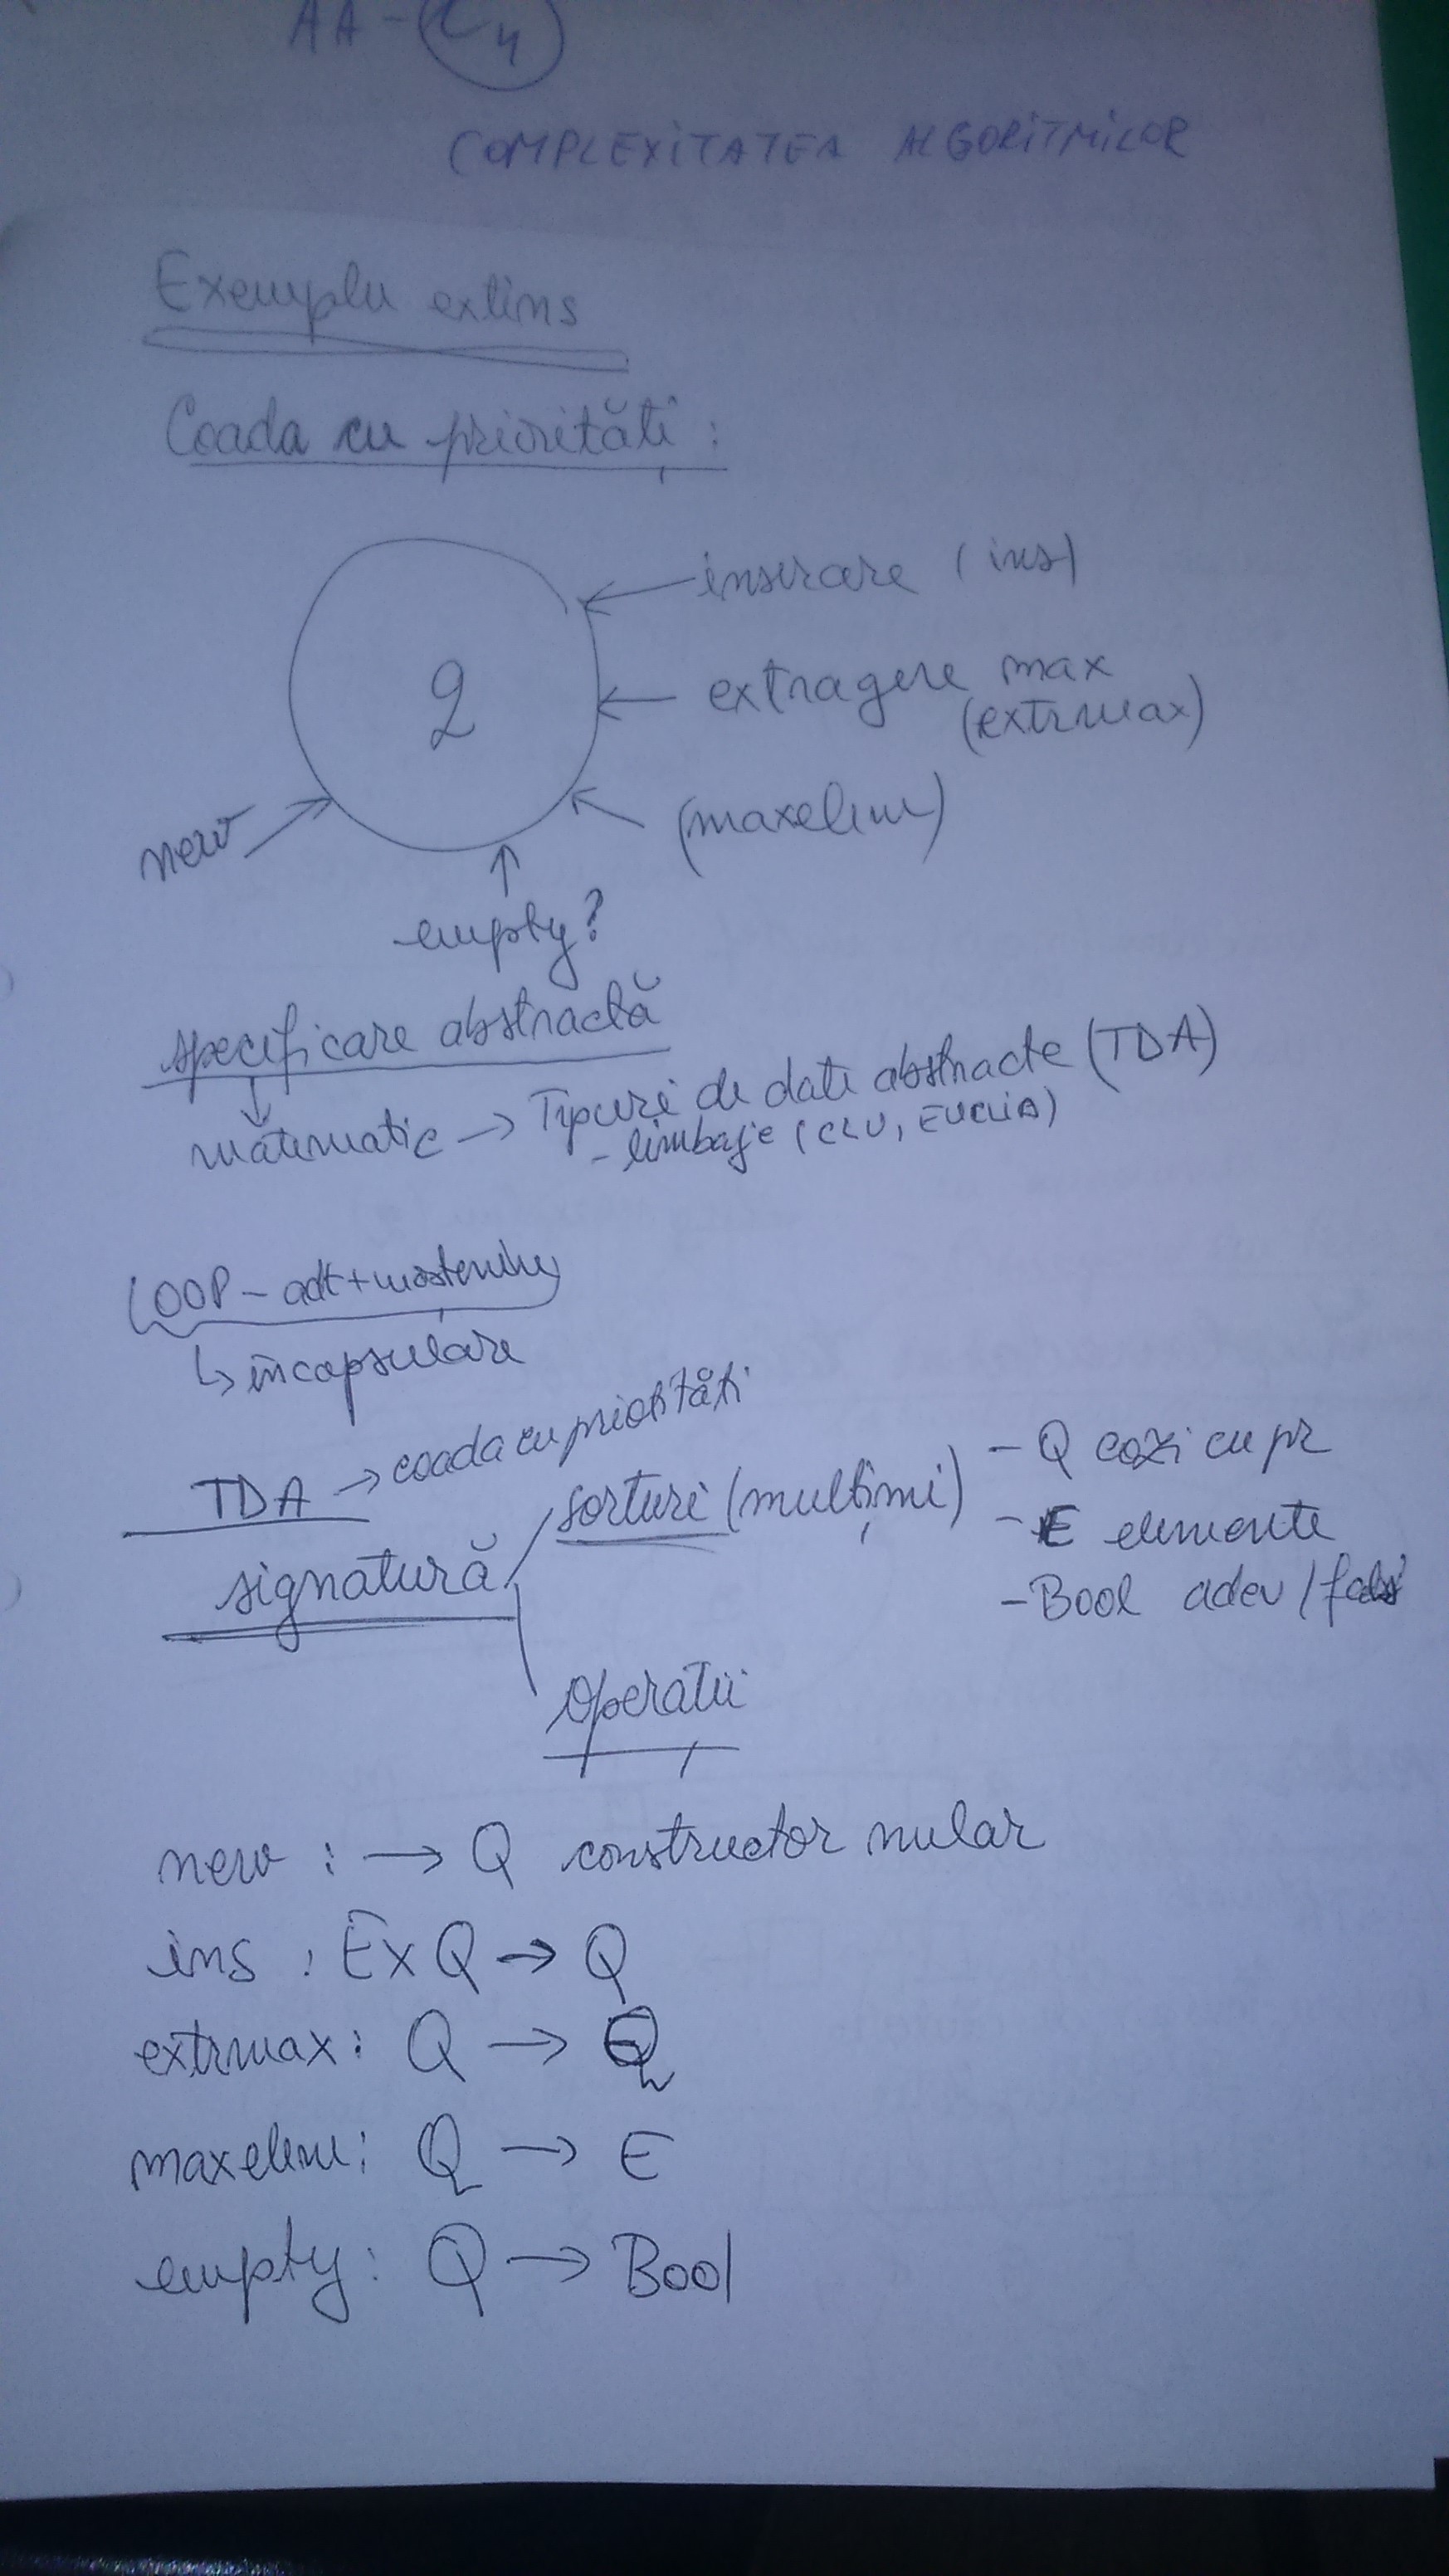 AA - C4
COMPLEXITATEA ALGORITMILOR
Exemplu extins
Coada cu priorități :
inserare (ins)
extragere max
(extrmax)
q
(maxelem)
new
empty?
specificare abstractă
matematic → Tipuri de date abstracte (TDA)
- limbaje (CLU, EUCLID)
LOOP - adt + moștenire
↳ încapsulare
TDA → coada cu priorități
signatură
sorturi (mulțimi)
- Q cozi cu pr
- E elemente
- Bool adev / fals
operații
new : → Q constructor nular
ins : E x Q → Q
extrmax : Q → Q
maxelem : Q → E
empty : Q → Bool